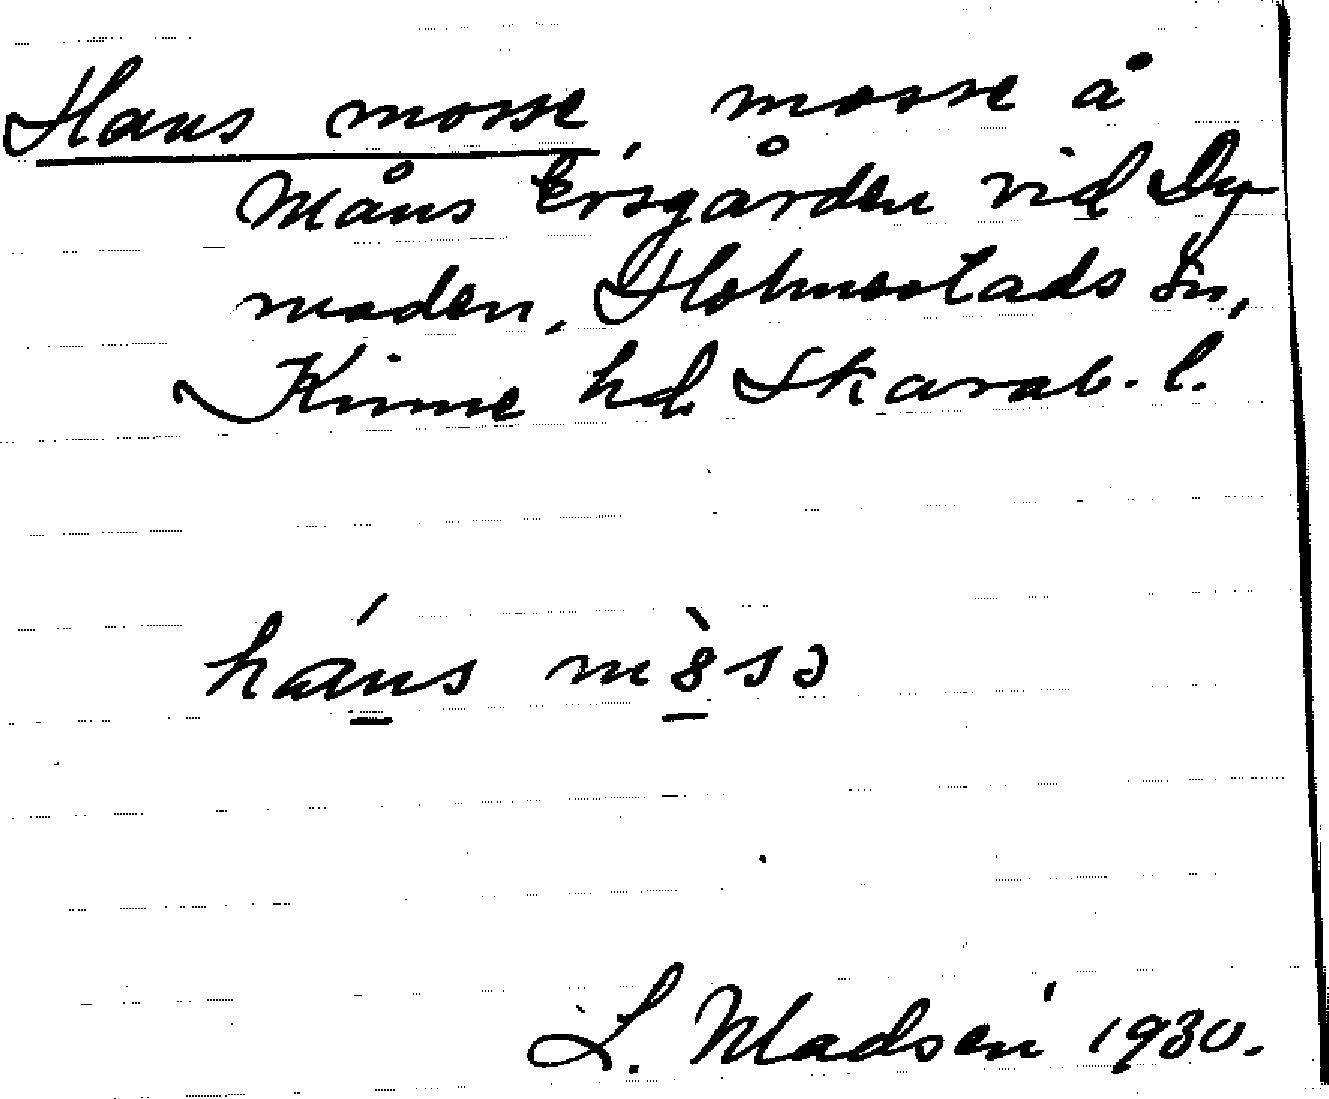 Hans mosse, mosse å
Måns Ersgården vid Dy
maden, Holmestads sn,
Kinne hd, Skarab. l.
háns mòsɔ
L. Madsén 1930.